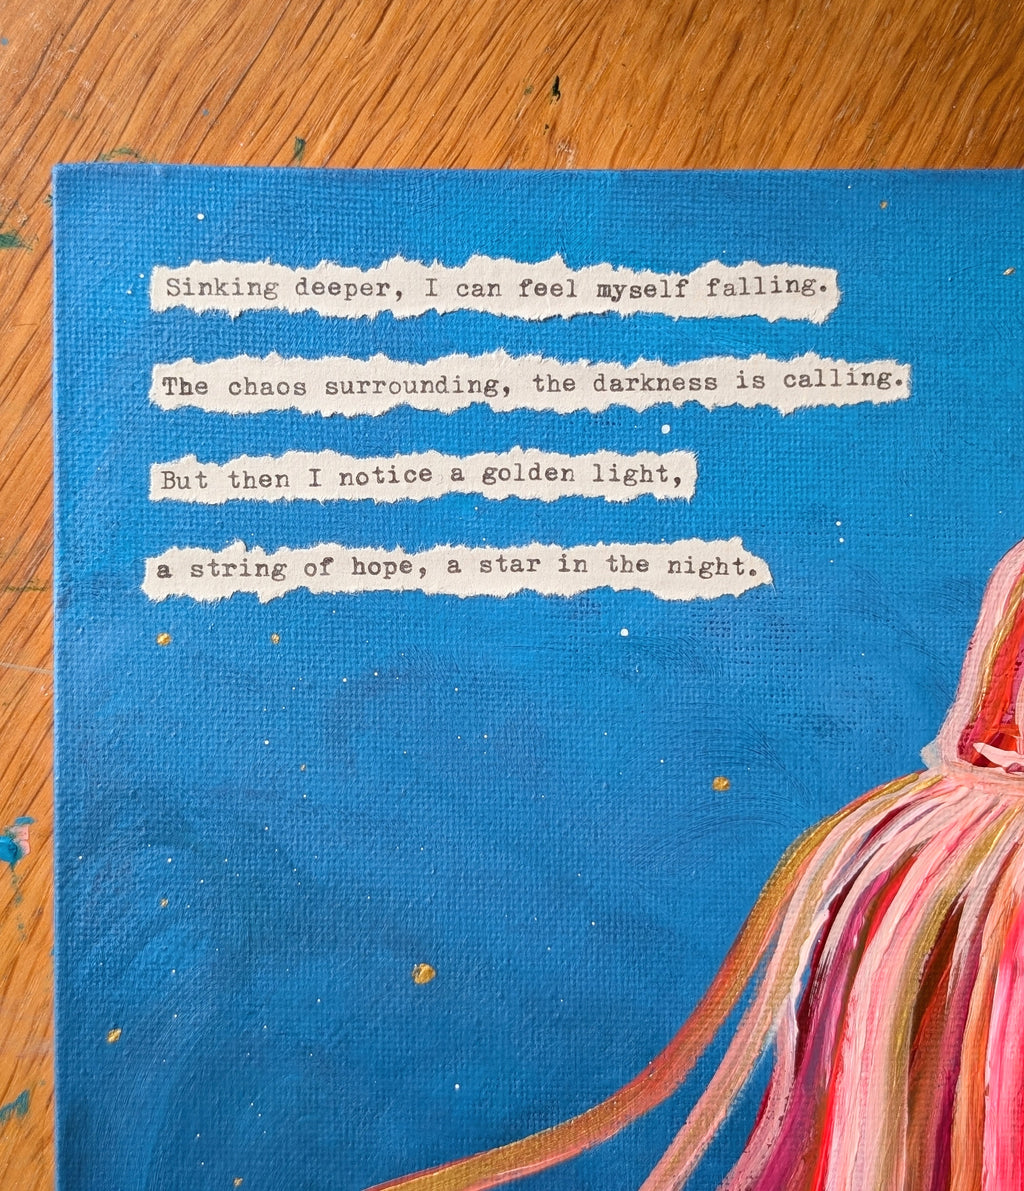 Sinking deeper, I can feel myself falling.
The chaos surrounding, the darkness is calling.
But then I notice a golden light,
a string of hope, a star in the night.